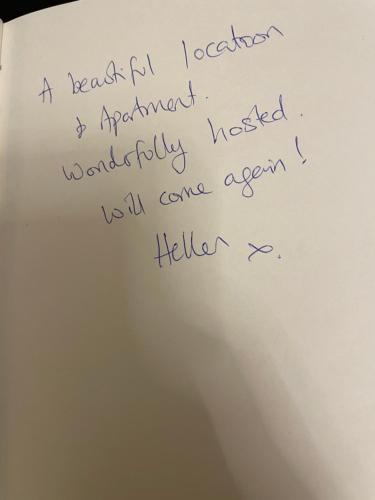 A beautiful location
& Apartment.
Wonderfully hosted.
Will come again!
Hellen x.